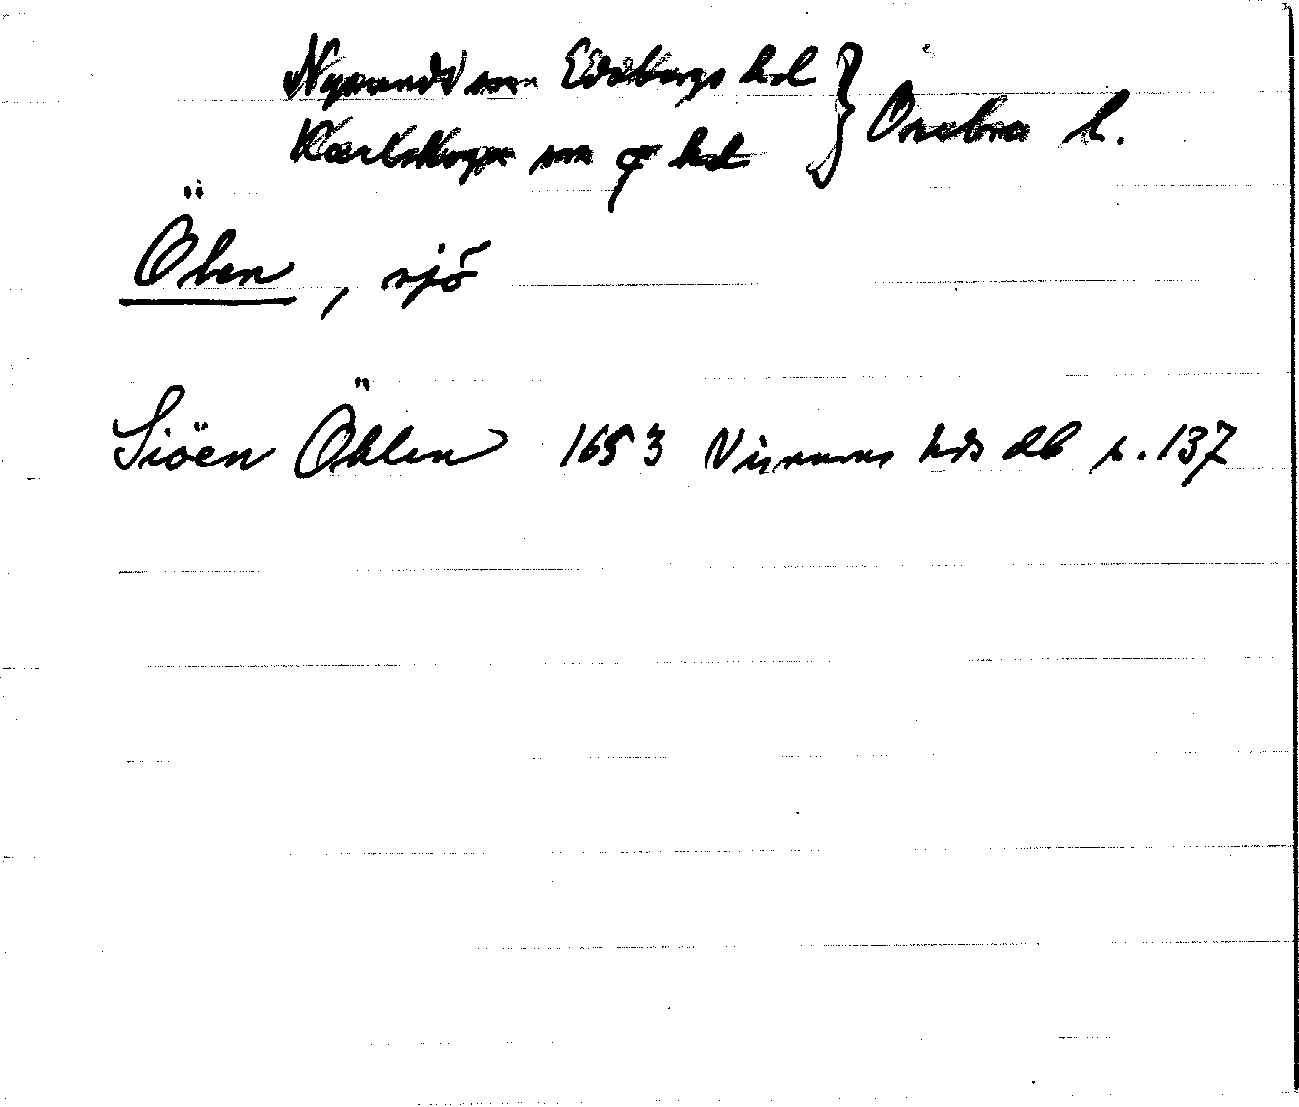 Nysunds sn Edsbergs hd } Örebro l.
Karlskoga sn o hd
Ölen, sjö
Siöen Öhlen 1653 Visnums hds db s. 137